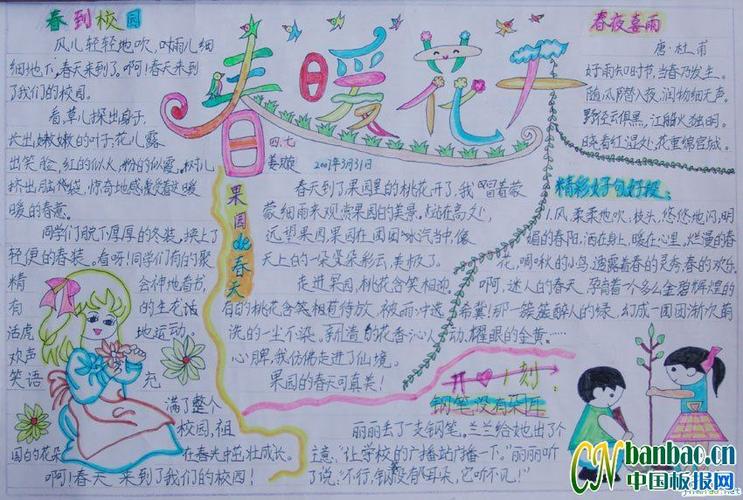 春到校园
风儿轻轻地吹，雨儿细
细地下，春天来到了。啊！春天来到
了我们的校园。
看，草儿探出身子，
长出嫩嫩的叶子，花儿露
出笑脸，红的似火，粉的似霞。树儿
挤出脑袋，惊奇地感受着这暖
暖的春意。
同学们脱下厚厚的冬装，换上了
轻便的春装。看呀！同学们有的聚
精会神地看书，
有的生龙
活虎地运动。
欢声
笑语充
满了整个
校园，祖
国的花朵在春光中茁壮成长。
啊！春天来到了我们的校园！
春暖花开
四.七
姜璇
2007年3月31日
果园de春天
春天到了果园里的桃花开了，我冒着蒙
蒙细雨来观赏果园的美景。站在高处，
远望果园果园在团团水汽当中像
天上的一朵朵彩云，美极了。
走进果园，桃花含笑相迎
有的桃花含笑相有待放，被雨冲选
洗的一尘不染。新造的花香沁人
心脾，我仿佛走进了仙境。
果园的春天可真美！
春夜喜雨
唐·杜甫
好雨知时节，当春乃发生。
随风潜入夜，润物细无声。
野径云俱黑，江船火独明。
晓看红湿处，花重锦官城。
精彩好句好段：
小风，柔柔地吹，枝头，悠悠地闪，明
媚的春阳，洒在身上，暖在心里，烂漫的春
花，啁啾的小鸟，透露着春的灵秀，春的欢乐，
啊，迷人的春天，孕育着一个多么金碧辉煌的
希冀！那一簇簇醉人的绿，幻成一团团渐次萌
动，耀眼的金黄……
开心1刻
钢笔没有耳
丽丽丢了一支钢笔，兰兰给她出了个
主意，“让学校的广播站广播一下。”丽丽听
了说：“不行，钢没有耳朵，它听不见！”
CN banbao.cn
中国板报网